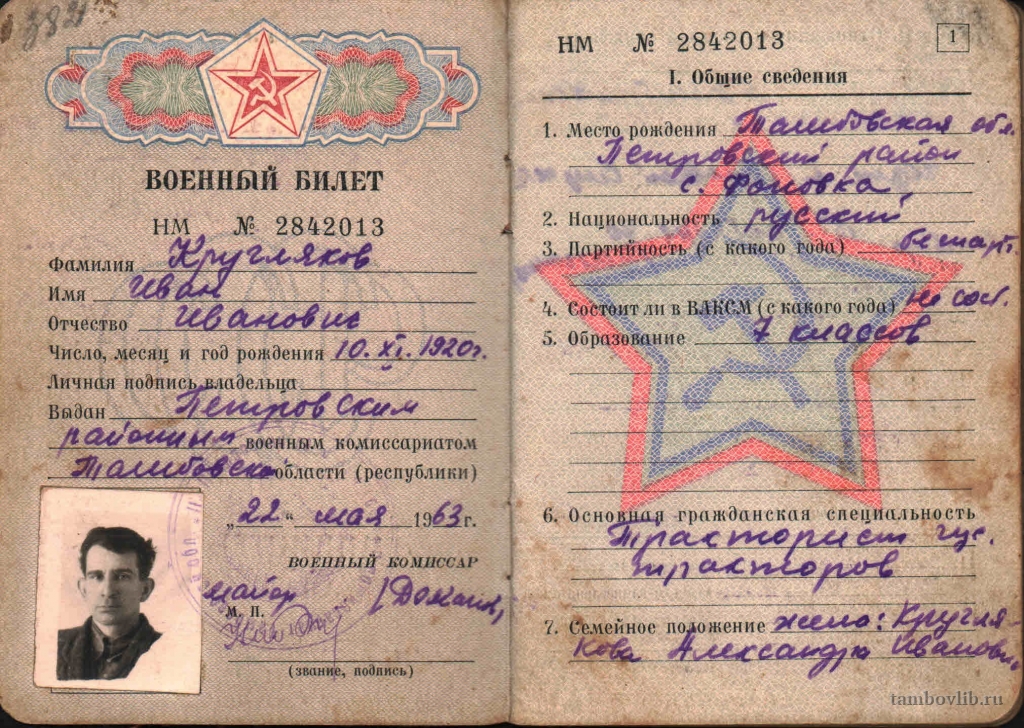 ВОЕННЫЙ БИЛЕТ
НМ № 2842013
Фамилия Кругляков
Имя Иван
Отчество Иванович
Число, месяц и год рождения 10.XI.1920г.
Личная подпись владельца
Выдан Петровским
районным военным комиссариатом
Тамбовской области (республики)
„22“ мая 1963 г.
ВОЕННЫЙ КОМИССАР
майор
М. П.
(звание, подпись)
НМ № 2842013
1
I. Общие сведения
1. Место рождения Тамбовская обл.
Петровский район
с. Фоновка
2. Национальность русский
3. Партийность (с какого года) беспарт.
4. Состоит ли в ВЛКСМ (с какого года) не сост.
5. Образование 7 классов
6. Основная гражданская специальность
Тракторист гус.
тракторов
7. Семейное положение жена: Кругля-
кова Александра Ивановн
tambovlib.ru